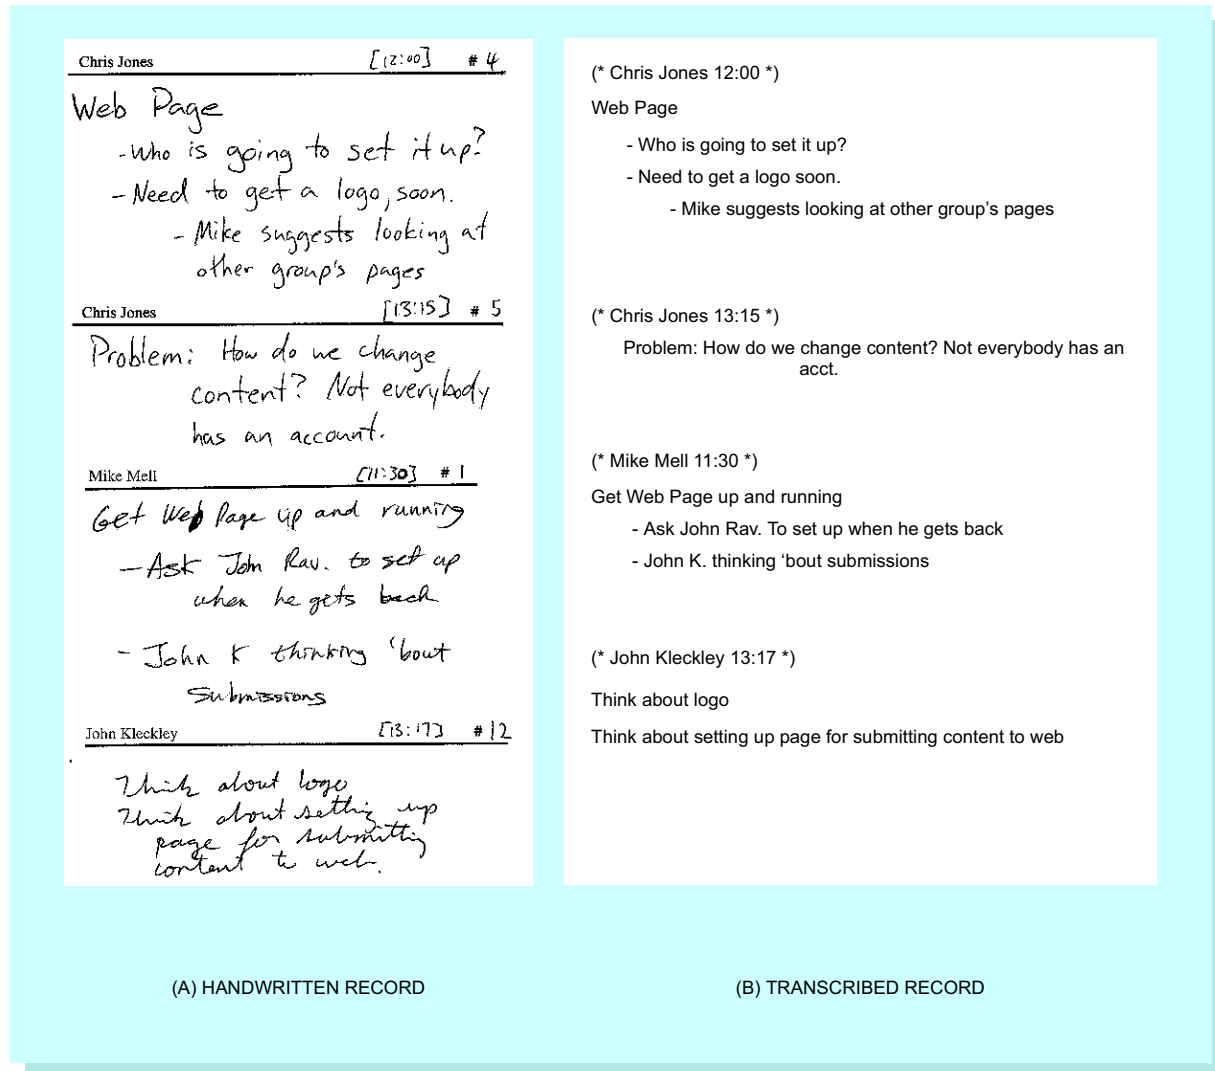 Chris Jones [12:00] # 4
Web Page
- Who is going to set it up?
- Need to get a logo, soon.
- Mike suggests looking at
other group's pages
Chris Jones [13:15] # 5
Problem: How do we change
content? Not everybody
has an account.
Mike Mell [11:30] # 1
Get Web Page up and running
- Ask John Rav. to set up
when he gets back
- John K thinking 'bout
submissions
John Kleckley [13:17] # 12
Think about logo
Think about setting up
page for submitting
content to web.
(A) HANDWRITTEN RECORD
(* Chris Jones 12:00 *)
Web Page
- Who is going to set it up?
- Need to get a logo soon.
- Mike suggests looking at other group’s pages
(* Chris Jones 13:15 *)
Problem: How do we change content? Not everybody has an
acct.
(* Mike Mell 11:30 *)
Get Web Page up and running
- Ask John Rav. To set up when he gets back
- John K. thinking ‘bout submissions
(* John Kleckley 13:17 *)
Think about logo
Think about setting up page for submitting content to web
(B) TRANSCRIBED RECORD